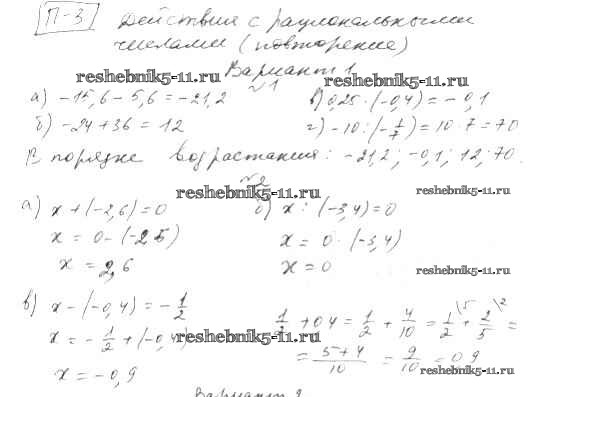 П-3 Действия с рациональными
числами (повторение)
Вариант 1
reshebnik5-11.ru reshebnik5-11.ru
№1
а) -15,6-5,6=-21,2 в) 0,25·(-0,4)=-0,1
б) -24+36=12 г) -10:(-1/7)=10·7=70
В порядке возрастания: -21,2; -0,1; 12; 70.
№2
reshebnik5-11.ru reshebnik5-11.ru
а) x+(-2,6)=0 б) x:(-3,4)=0
x=0-(-2,5) x=0·(-3,4)
x=2,6 x=0
reshebnik5-11.ru
в) x-(-0,4)=-1/2 1/2+0,4=1/2+4/10=1/2\5+2/5\2=
x=-1/2+(-0,4) =5+4/10=9/10=0,9
reshebnik5-11.ru
x=-0,9
reshebnik5-11.ru
Вариант 2